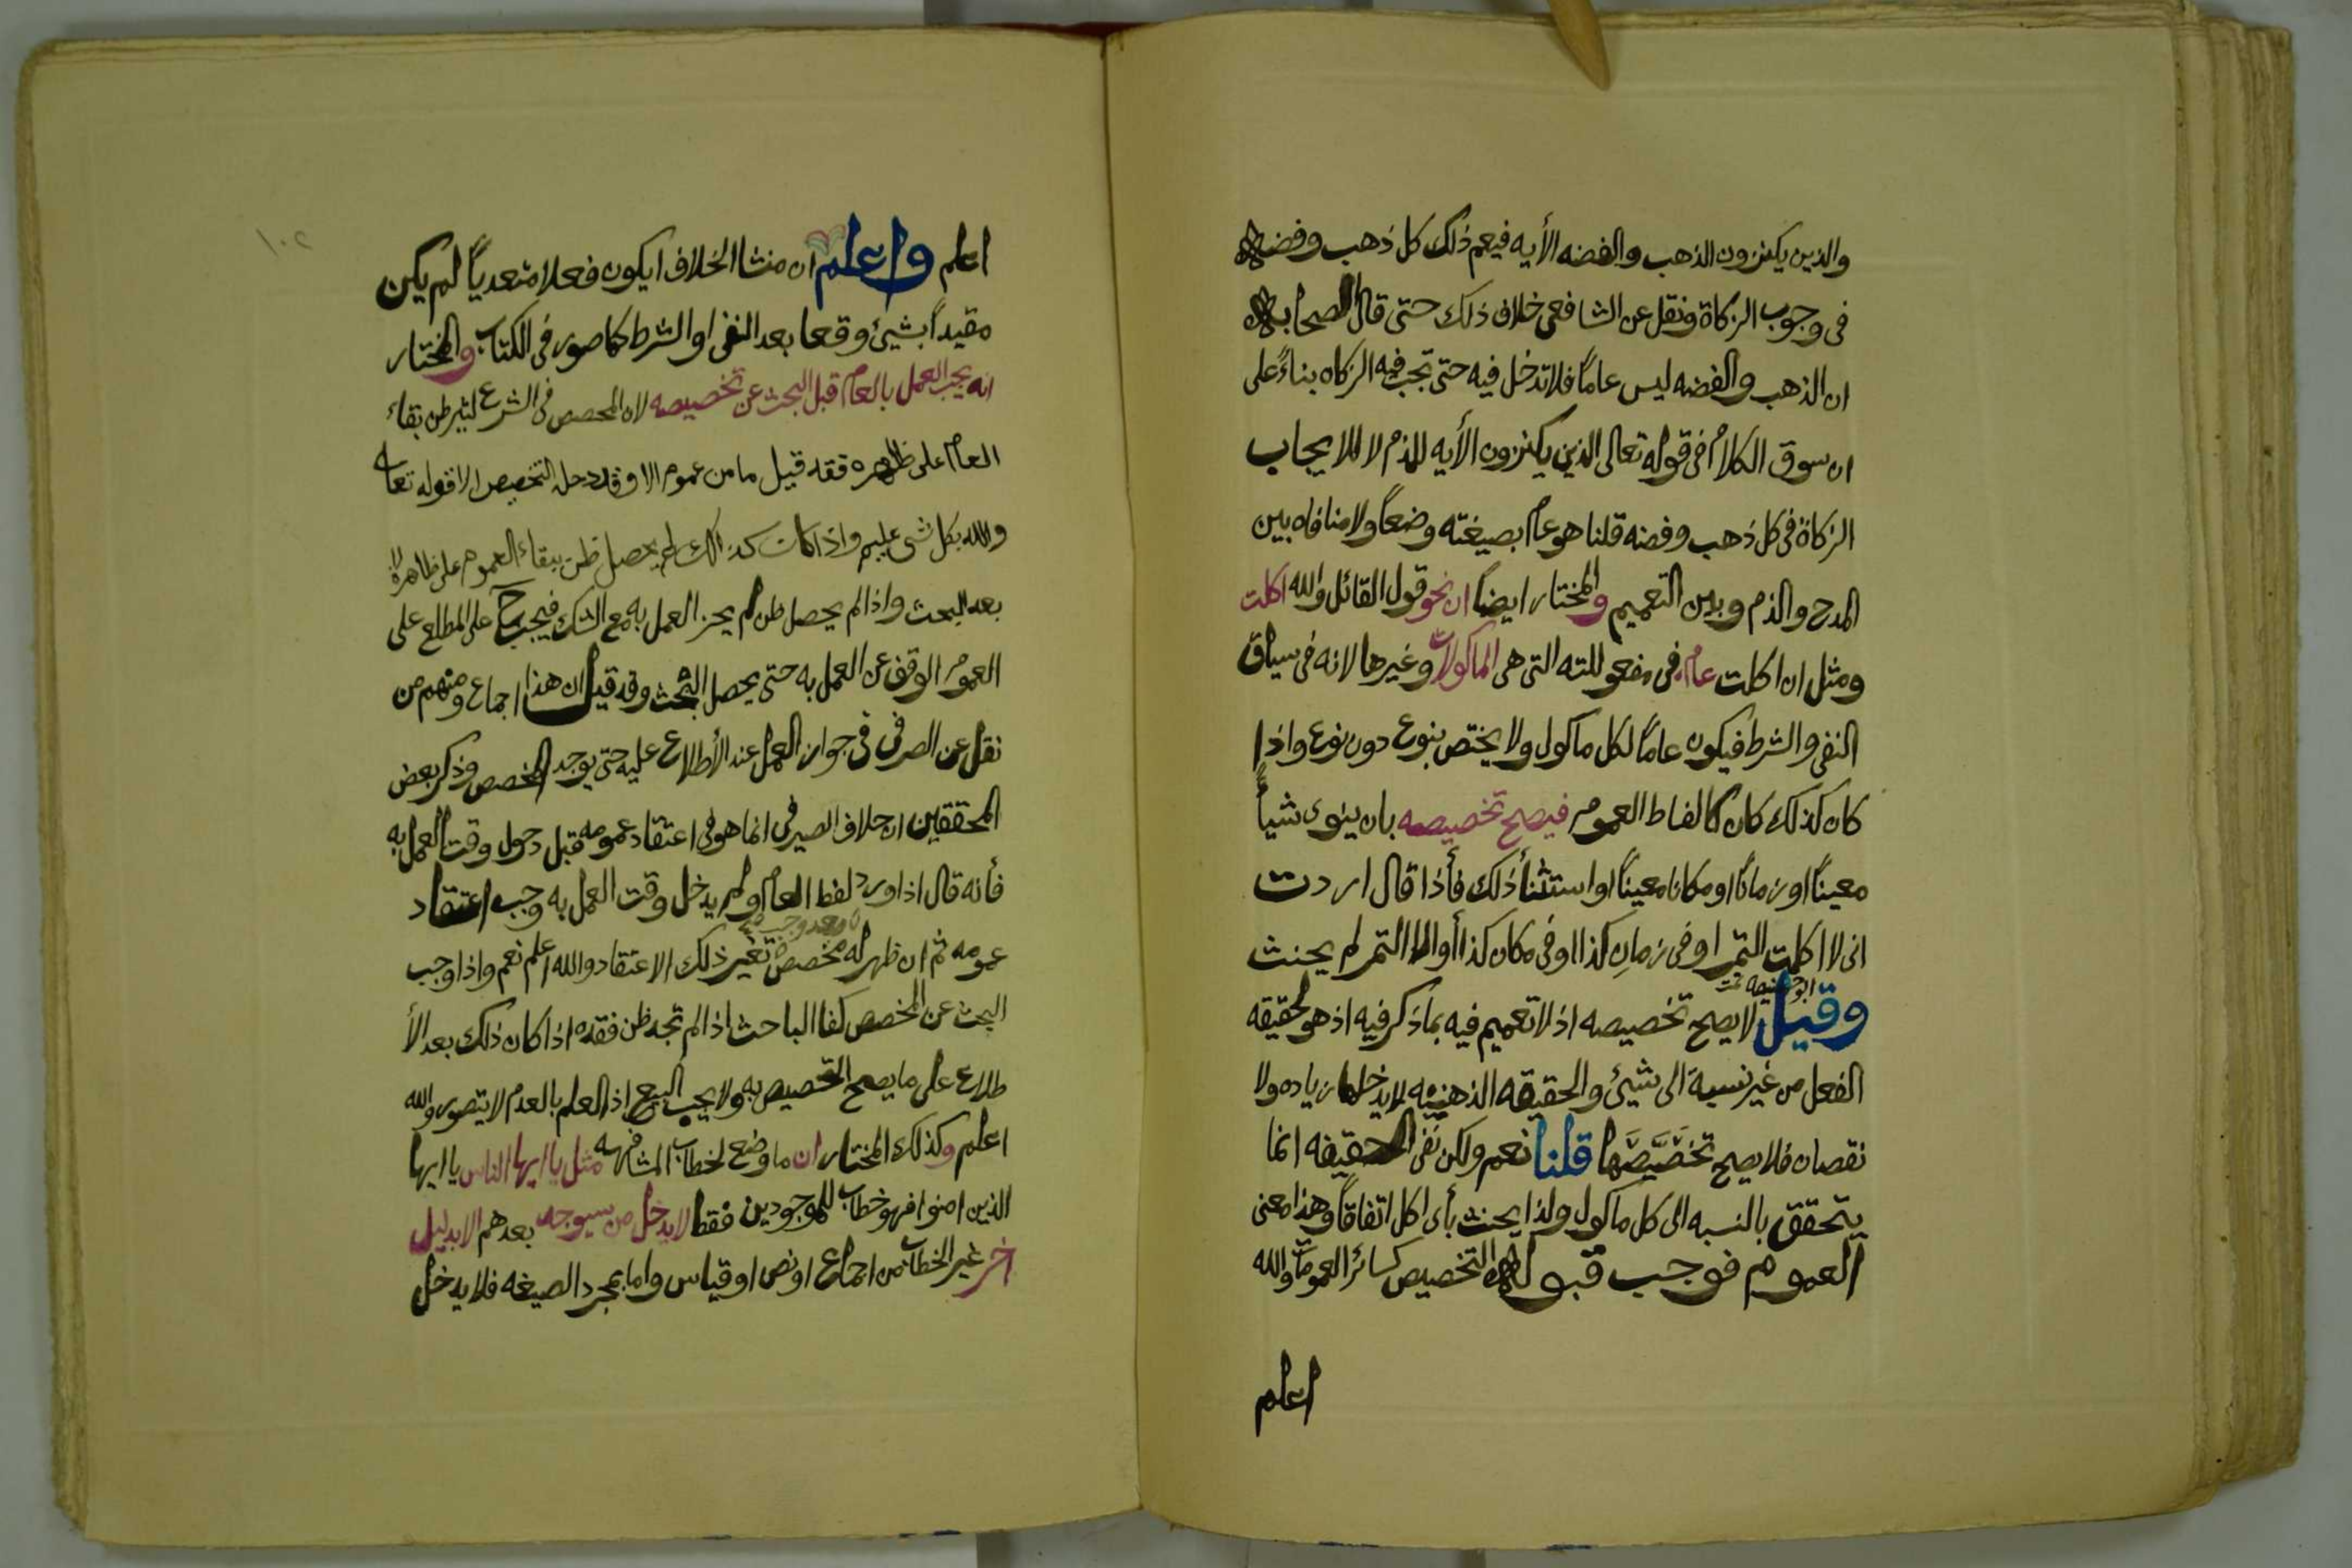 والذين يكنزون الذهب والفضه الأيه فيعم ذلك كل ذهب وفضه
فى وجوب الزكاة ونقل عن الشافعى خلاف ذلك حتى قال اصحابه
ان الذهب والفضه ليس عاماً فلا تدخل فيه حتى تجب فيه الزكاه بناءً على
ان سوق الكلام فى قوله تعالى الذين يكنزون الأيه للذم لا للايجاب
الزكاة فى كل ذهب وفضه قلنا هو عام بصيغته وضعاً ولا منافاه بين
المدح والذم وبين التعميم والمختار ايضاً ان نحو قول القائل والله اكلت
ومثل ان اكلت عام فى مفعوللته التى هى الماكولات وغيرها لانه فى سياق
النفى والشرط فيكون عاماً لكل ماكول ولا يختص بنوع دون نوع واذا
كان كذلك كان كالفاظ العموم فيصح تخصيصه بان ينوى شيأً
معيناً او زماناً او مكانا معيناً او استثنأ ذلك فأذا قال اردت
انى لا اكلت التمر او فى زمانٍ كذا او فى مكان كذا أو الا التمر لم يحنث
وقيل لا يصح تخصيصه اذ لا تعميم فيه بماذكر فيه اذ هو لحقيقه
الفعل من غير نسبة الى شيئ والحقيقه الذهنيه لا يدخلها زياده ولا
نقصان فلا يصح تخصيصها قلنا نعم ولكن نفى الحقيقه انما
يتحقق بالنسبه الى كل ماكول ولذا يحنث بأى اكل اتفاقاً وهذا معنى
العموم فوجب قبوله التخصيص كسائر العمومات والله
اعلم
١٠٢
اعلم واعلم ان منشا الخلاف ايكون فعلا متعدياً لم يكن
مقيداً بشيئ وقعا بعد النفى او الشرط كما صور فى الكتاب والمختار
انه يجب العمل بالعام قبل البحث عن تخصيصه لان المخصص فى الشرع بقاء
العام على ظاهره فقد قيل ما من عموم الا وقد دخله التخصيص الا قوله تعالى
والله بكل شى عليم واذا كانت كذلك لم يحصل ظن ببقاء العموم على ظاهره الا
بعد البحث واذا لم يحصل ظن لم يجز العمل به مع الشك فيجب ح على المطلع على
العموم الوقف عن العمل به حتى يحصل البحث وقد قيل ان هذا اجماع ومنهم من
نقل عن الصرفى فى جواز العمل عند الأطلاع عليه حتى يوجد المخصص وذكر بعض
المحققين ان خلاف الصيرفى انما هو فى اعتقاد عمومه قبل دخول وقت العمل به
فأنه قال اذا ورد لفظ العام ولم يدخل وقت العمل به وجب اعتقاد
عمومه ثم ان ظهر له مخصص تغير ذلك الاعتقاد والله اعلم نعم واذا وجب
البحث عن المخصص كفا الباحث اذا لم تجد ظن فقده اذا كان ذلك بعد الأ
طلاع على ما يصح التخصيص به ولا يجب اذ العلم بالعدم لا يتصور والله
اعلم وكذلك المختار ان ما وضع لخطاب المشافهه مثل يا ايها الناس يا ايها
الذين امنوا فهو خطاب للموجودين فقط لا يدخل من سيوجد بعدهم الا بدليل
اخر غير الخطاب من اجماع او نص او قياس واما بمجرد الصيغه فلا يدخل